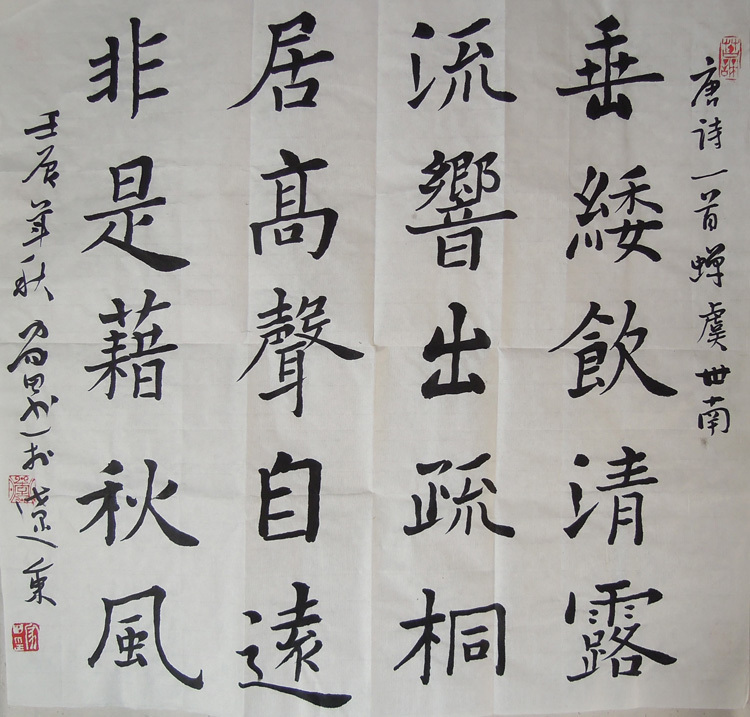 唐诗一首蝉虞世南
垂緌飲清露
流響出疏桐
居高聲自遠
非是藉秋風
壬辰年秋